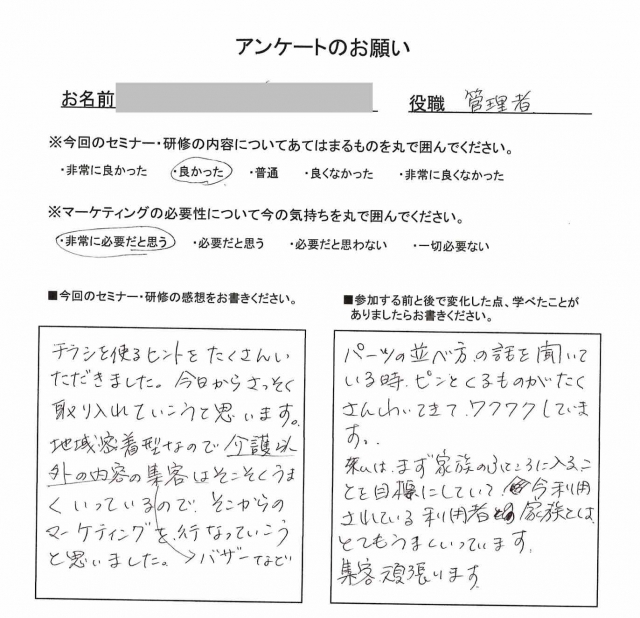 アンケートのお願い
お名前 役職 管理者
※今回のセミナー・研修の内容についてあてはまるものを丸で囲んでください。
・非常に良かった ・良かった ・普通 ・良くなかった ・非常に良くなかった
※マーケティングの必要性について今の気持ちを丸で囲んでください。
・非常に必要だと思う ・必要だと思う ・必要だと思わない ・一切必要ない
■今回のセミナー・研修の感想をお書きください。
チラシを使るヒントをたくさんい
ただきました。今日からさっそく
取り入れていこうと思います。
地域密着型なので介護以
外の内容の集客はそこそこうま
くいっているので、そこからの
マーケティングを行なっていこう
と思いました。 バザーなど
■参加する前と後で変化した点、学べたことが
ありましたらお書きください。
パーツの並べ方の話を聞いて
いる時、ピンとくるものがたく
さんわいてきて、ワクワクしていま
す。
私は、まず家族のふところに入るこ
とを目標にしていて、今利用
されている利用者 家族とは、
とてもうまくいっています。
集客頑張ります